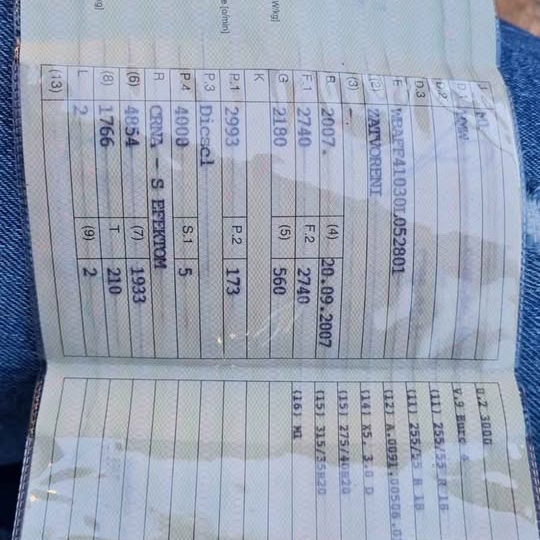 D.3
E WBAFF41030L052801
(2) ZATVORENI
(3) -.
B 2007. (4) 20.09.2007
F.1 2740 F.2 2740
G 2180 (5) 560
K
P.1 2993 P.2 173
P.3 Diesel
P.4 4000 S.1 5
R CRNA - S EFEKTOM
(6) 4854 (7) 1933
(8) 1766 T 210
L 2 (9) 2
(13)
D.2 3000
V.9 Euro 4
(11) 255/55 R 18
(11) 255/55 R 18
(14) X5 3.0 D
(15) 275/40R20
(15) 315/35R20
(16) M1